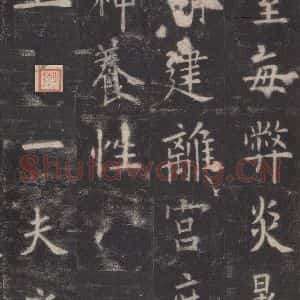 室每弊炎暑
請建離宮庶
神養性
上一夫之
Shufawang.CN